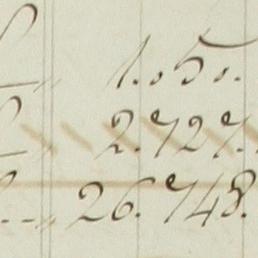 1.050.
2.727.
26.748.